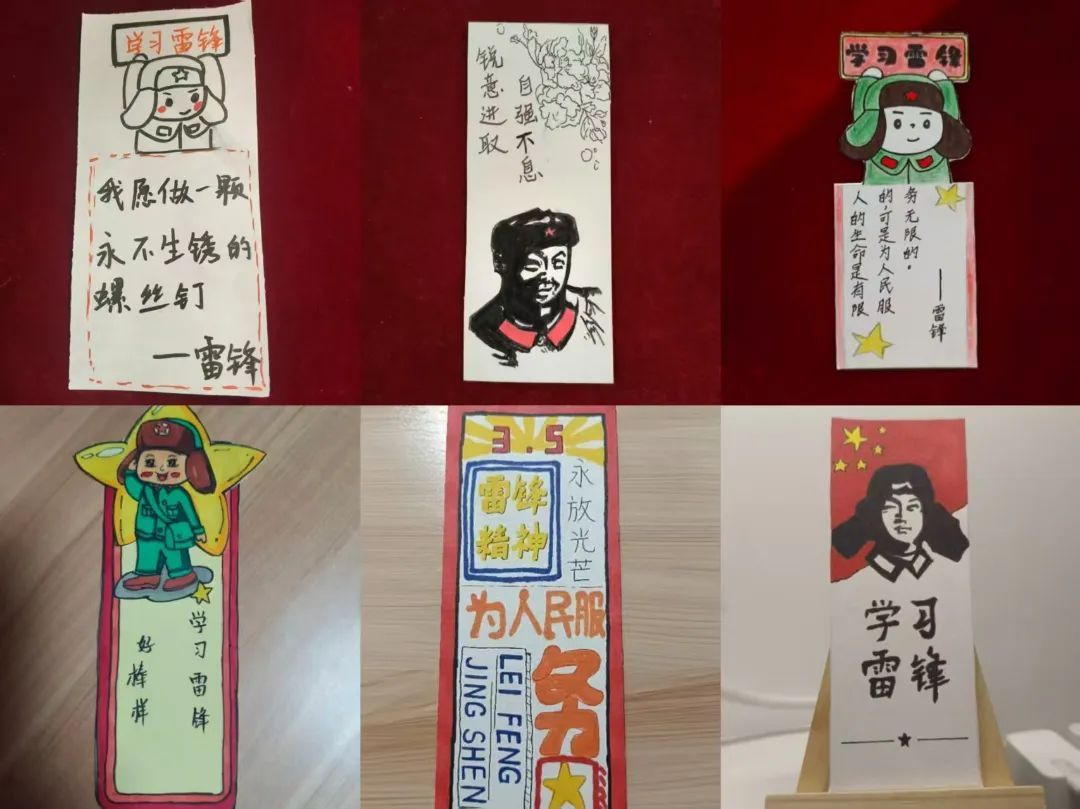 学习雷锋
我愿做一颗
永不生锈的
螺丝钉
一雷锋
锐意进取
自强不息
学习雷锋
人的生命是有限
的,可是为人民服
务无限的。
——雷锋
学习雷锋
好榜样
3.5
雷锋
精神
永放光芒
为人民服
务
LEI FENG
JING SHEN
学习
雷锋